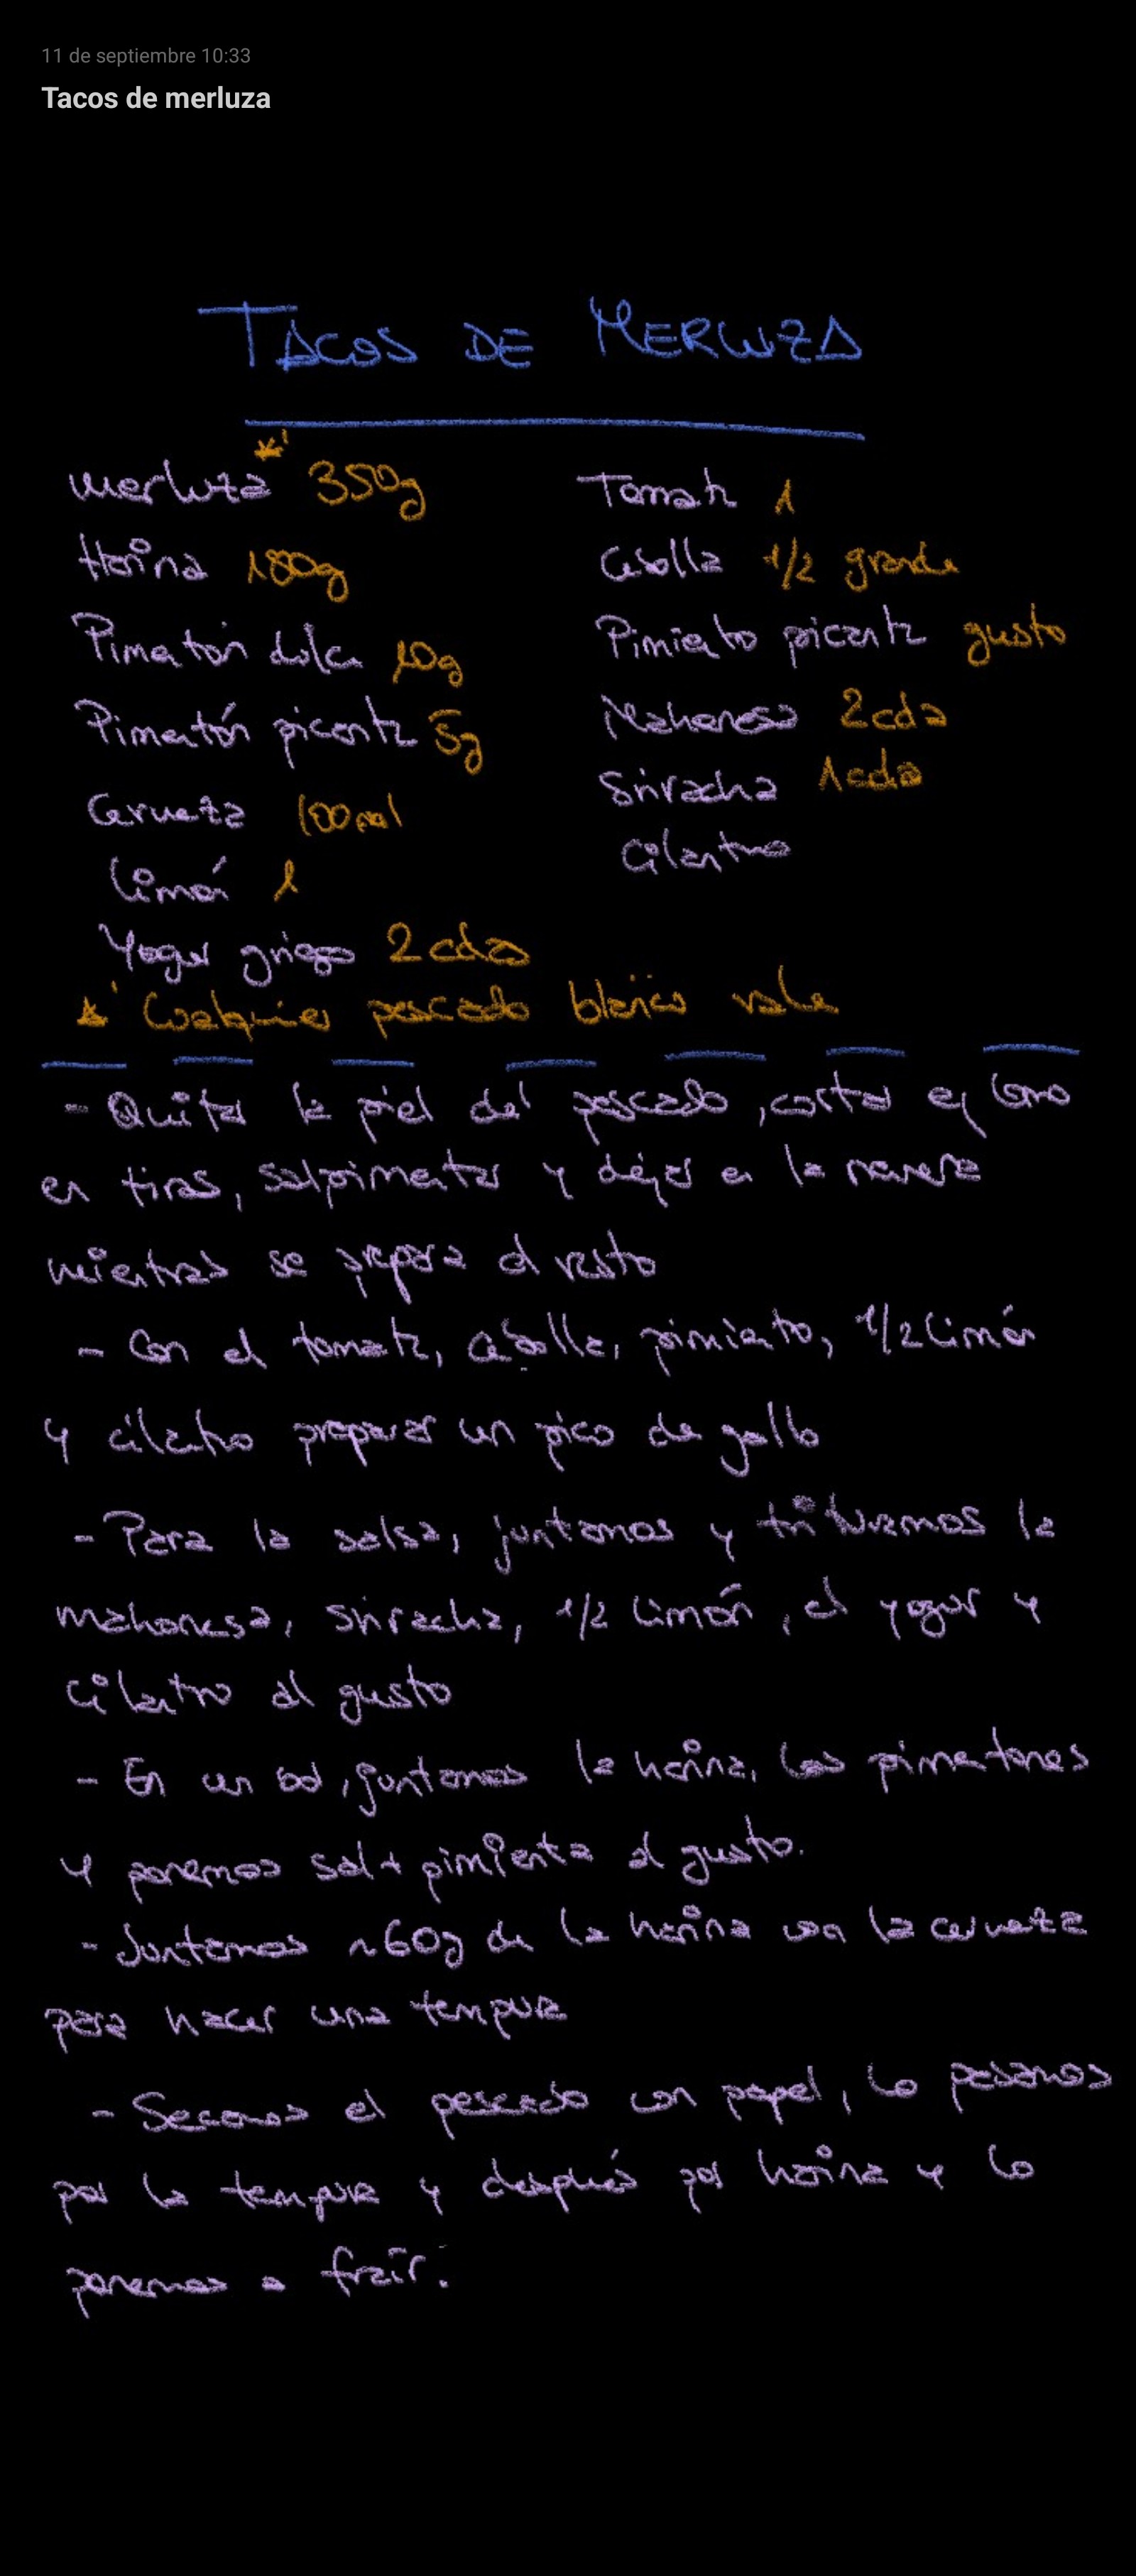 11 de septiembre 10:33
Tacos de merluza
TACOS DE MERLUZA
Merluza *¹ 350g
Harina 180g
Pimentón dulce 10g
Pimentón picante 5g
Cerveza 100ml
Limón 1
Yogur griego 2 cda
Tomate 1
Cebolla 1/2 grande
Pimiento picante gusto
Mahonesa 2 cda
Sriracha 1 cda
Cilantro
*¹ Cualquier pescado blanco vale
- Quitar la piel del pescado, cortar el lomo
en tiras, salpimentar y dejar en la nevera
mientras se prepara el resto
- Con el tomate, cebolla, pimiento, 1/2 limón
y cilantro preparar un pico de gallo
- Para la salsa, juntamos y trituramos la
mahonesa, sriracha, 1/2 limón, el yogur y
cilantro al gusto
- En un bol, juntamos la harina, los pimentones
y ponemos sal + pimienta al gusto.
- Juntamos ~60g de la harina con la cerveza
para hacer una tempura
- Secamos el pescado con papel, lo pasamos
por la tempura y después por harina y lo
ponemos a freír.